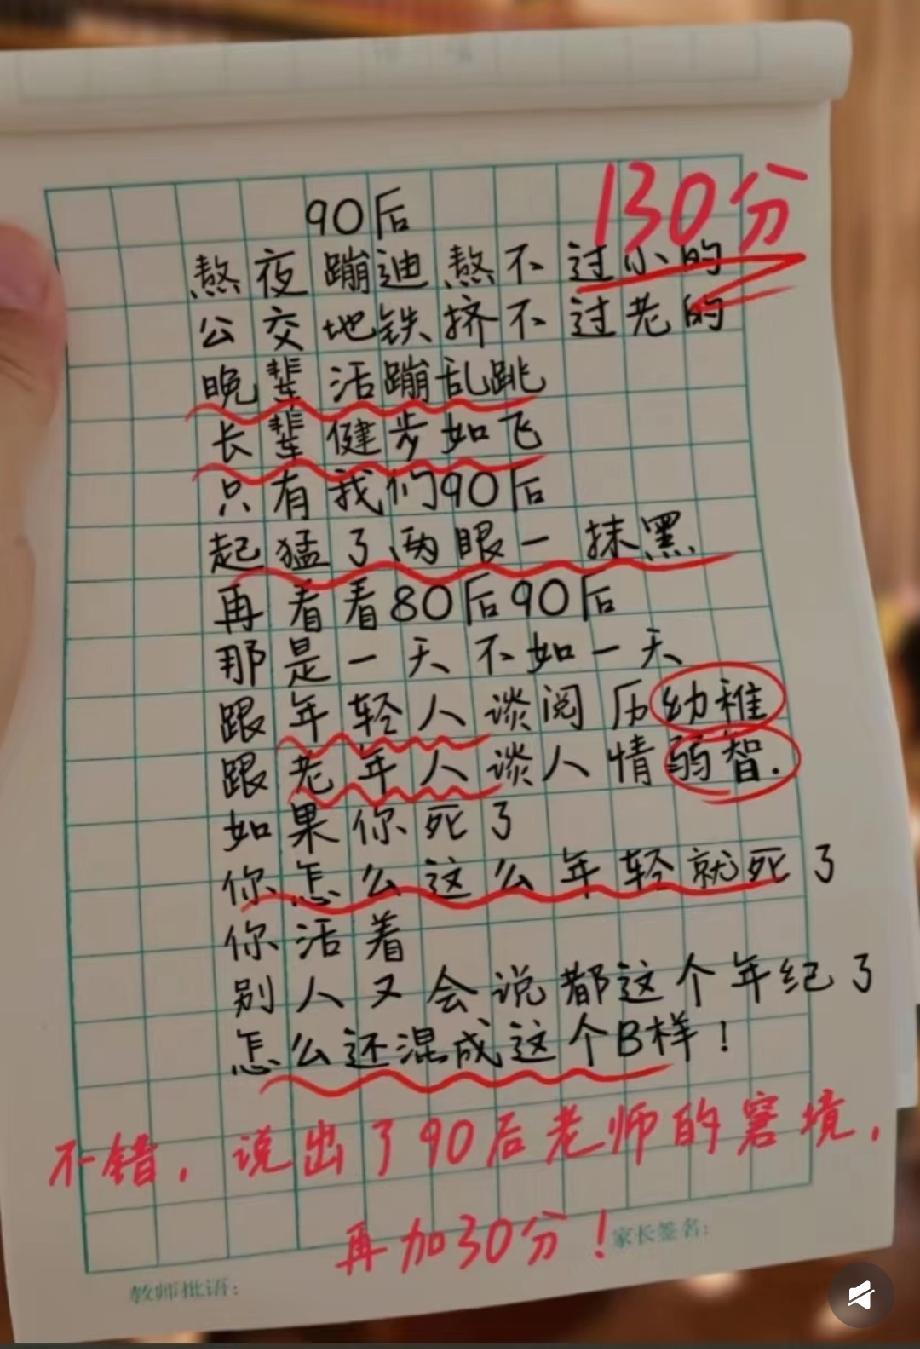 90后
130分
熬夜蹦迪熬不过小的
公交地铁挤不过老的
晚辈活蹦乱跳
长辈健步如飞
只有我们90后
起猛了两眼一抹黑
再看看80后90后
那是一天不如一天
跟年轻人谈阅历幼稚
跟老年人谈人情弱智.
如果你死了
你怎么这么年轻就死了
你活着
别人又会说都这个年纪了
怎么还混成这个B样！
不错，说出了90后老师的窘境，
再加30分！
家长签名：
教师批语：